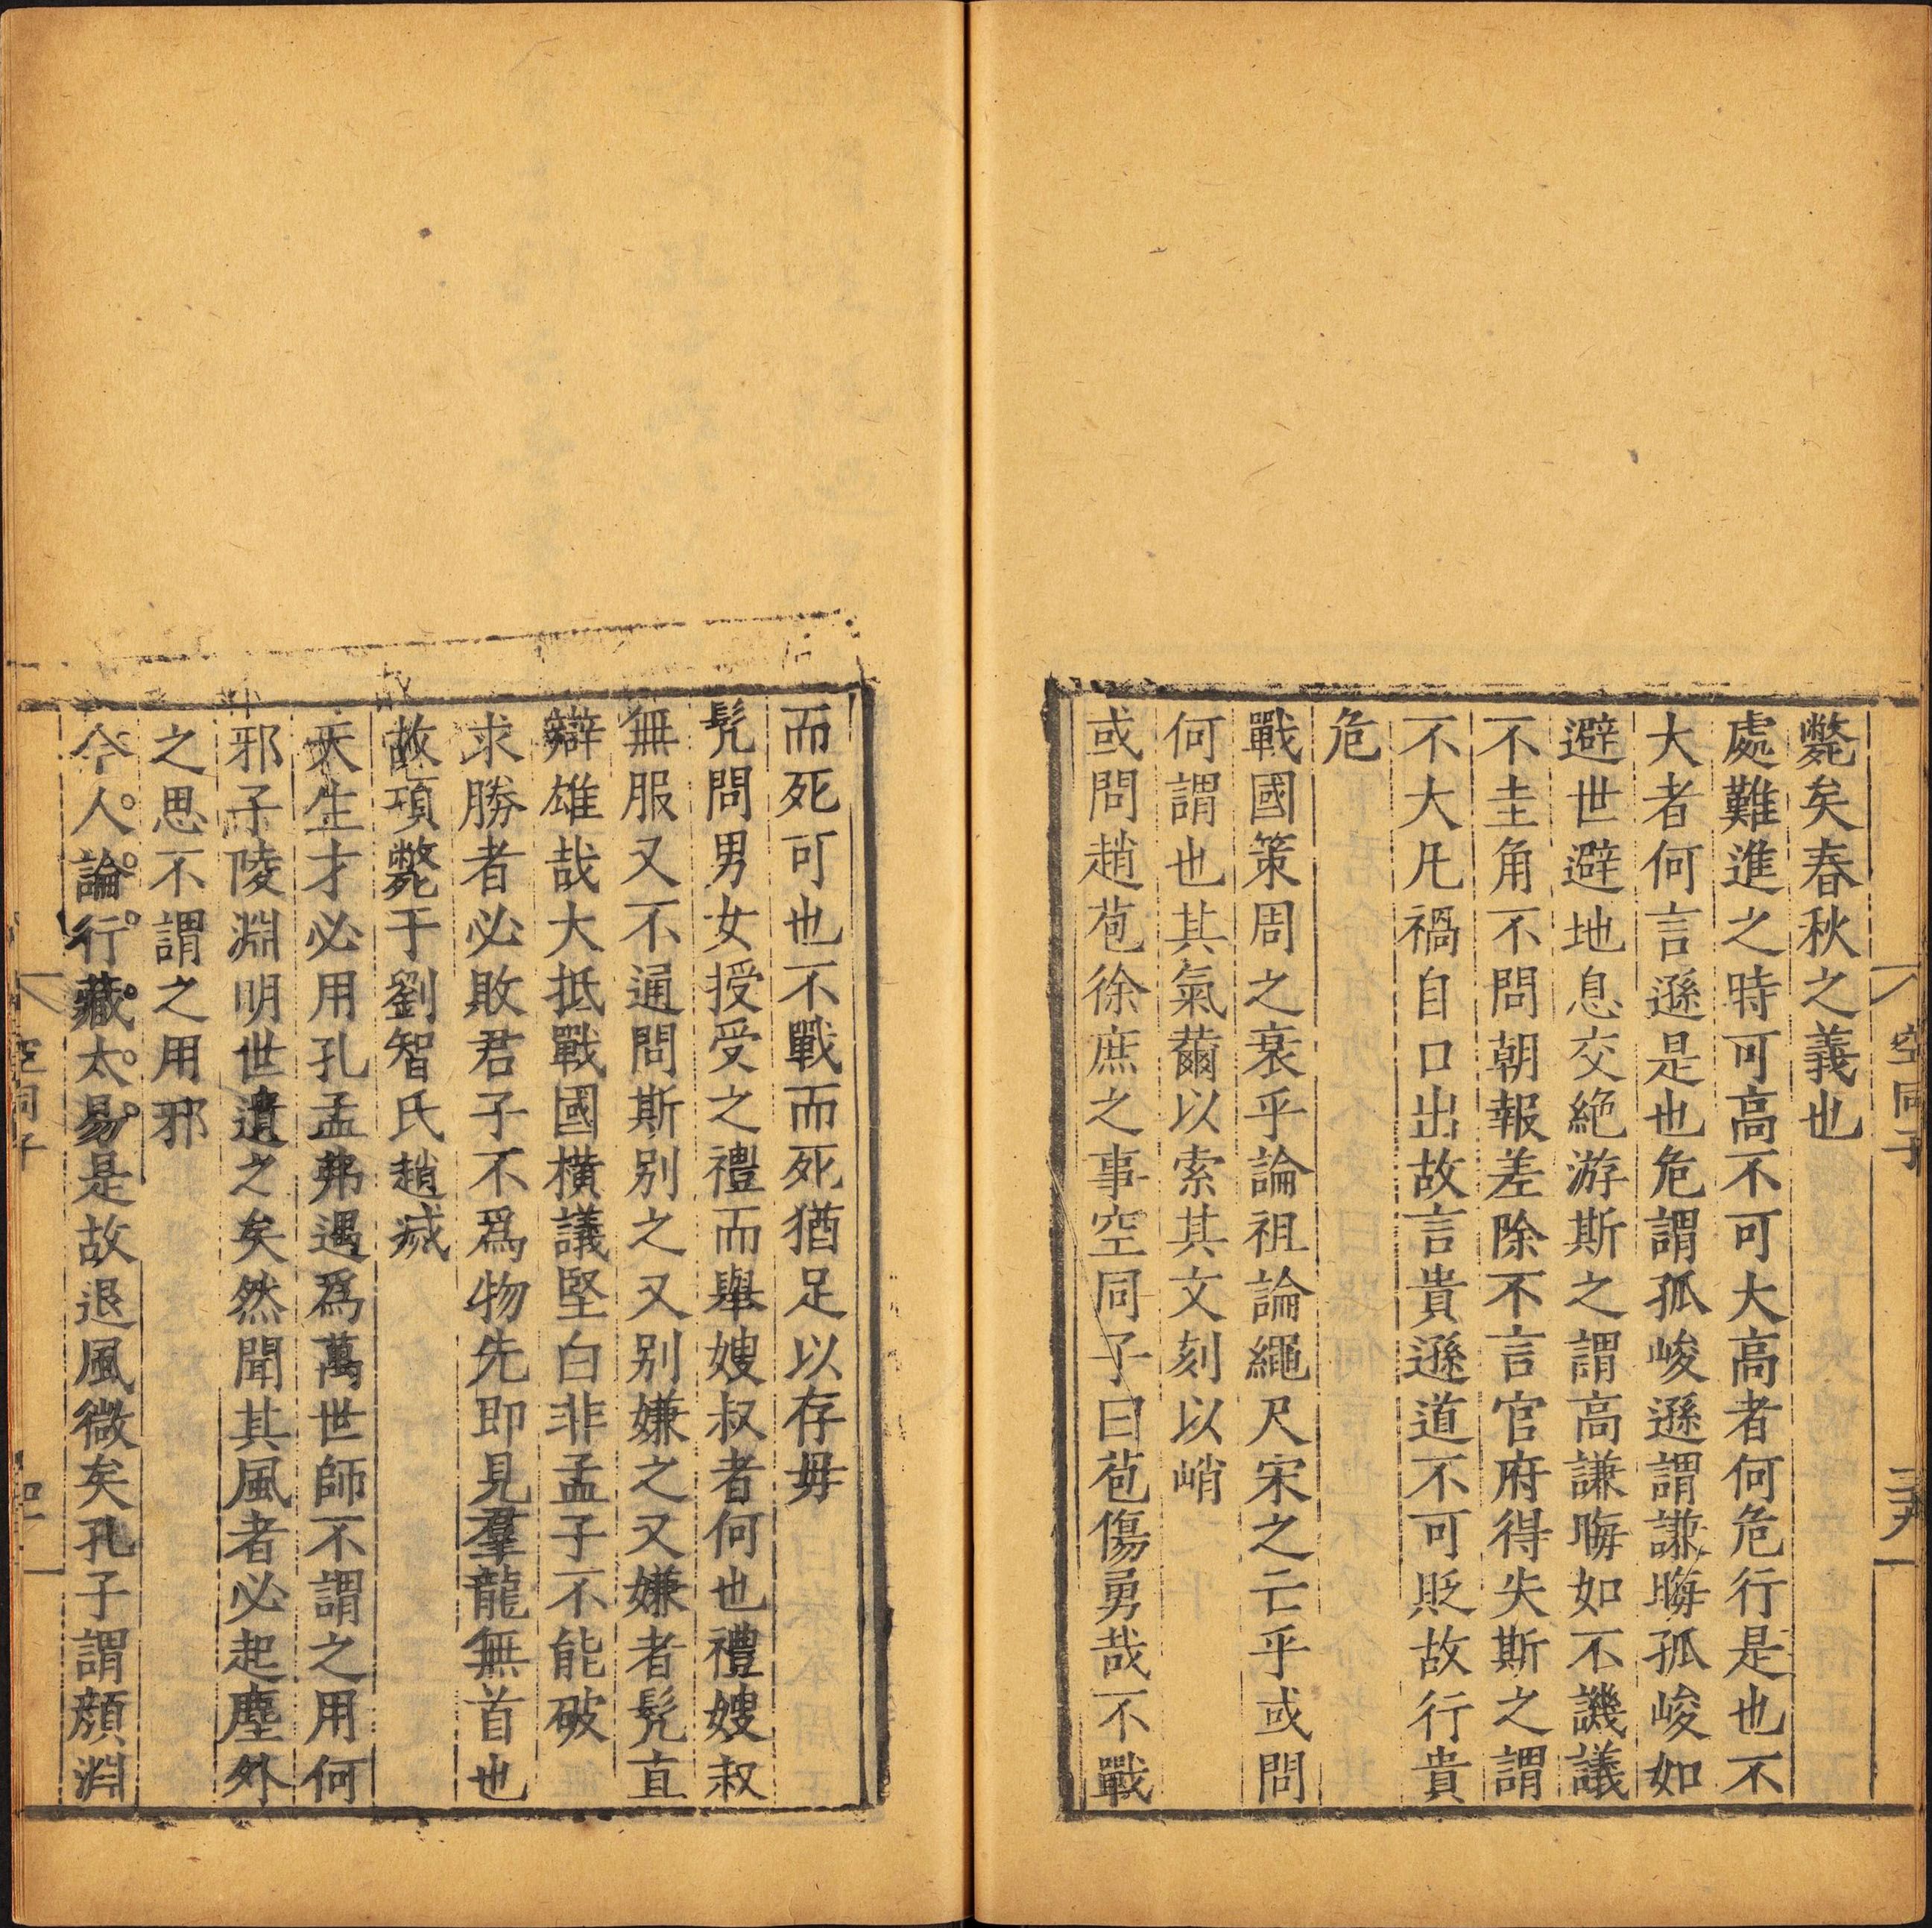 空同子
三九
斃矣春秋之義也
處難進之時可高不可大高者何危行是也不
大者何言遜是也危謂孤峻遜謂謙晦孤峻如
避世避地息交絶游斯之謂高謙晦如不譏議
不圭角不問朝報差除不言官府得失斯之謂
不大凡禍自口出故言貴遜道不可貶故行貴
危
戰國策周之衰乎論祖論繩尺宋之亡乎或問
何謂也其氣薾以索其文刻以峭
或問趙苞徐庶之事空同子曰苞傷勇哉不戰
而死可也不戰而死猶足以存毋
髠問男女授受之禮而舉嫂叔者何也禮嫂叔
無服又不通問斯别之又别嫌之又嫌者髠直
辯雄哉大抵戰國横議堅白非孟子不能破
求勝者必敗君子不爲物先即見羣龍無首也
故項斃于劉智氏趙滅
天生才必用孔孟弗遇爲萬世師不謂之用何
邪子陵淵明世遺之矣然聞其風者必起塵外
之思不謂之用邪
今人論行藏太易是故退風微矣孔子謂顏淵
空同子
四